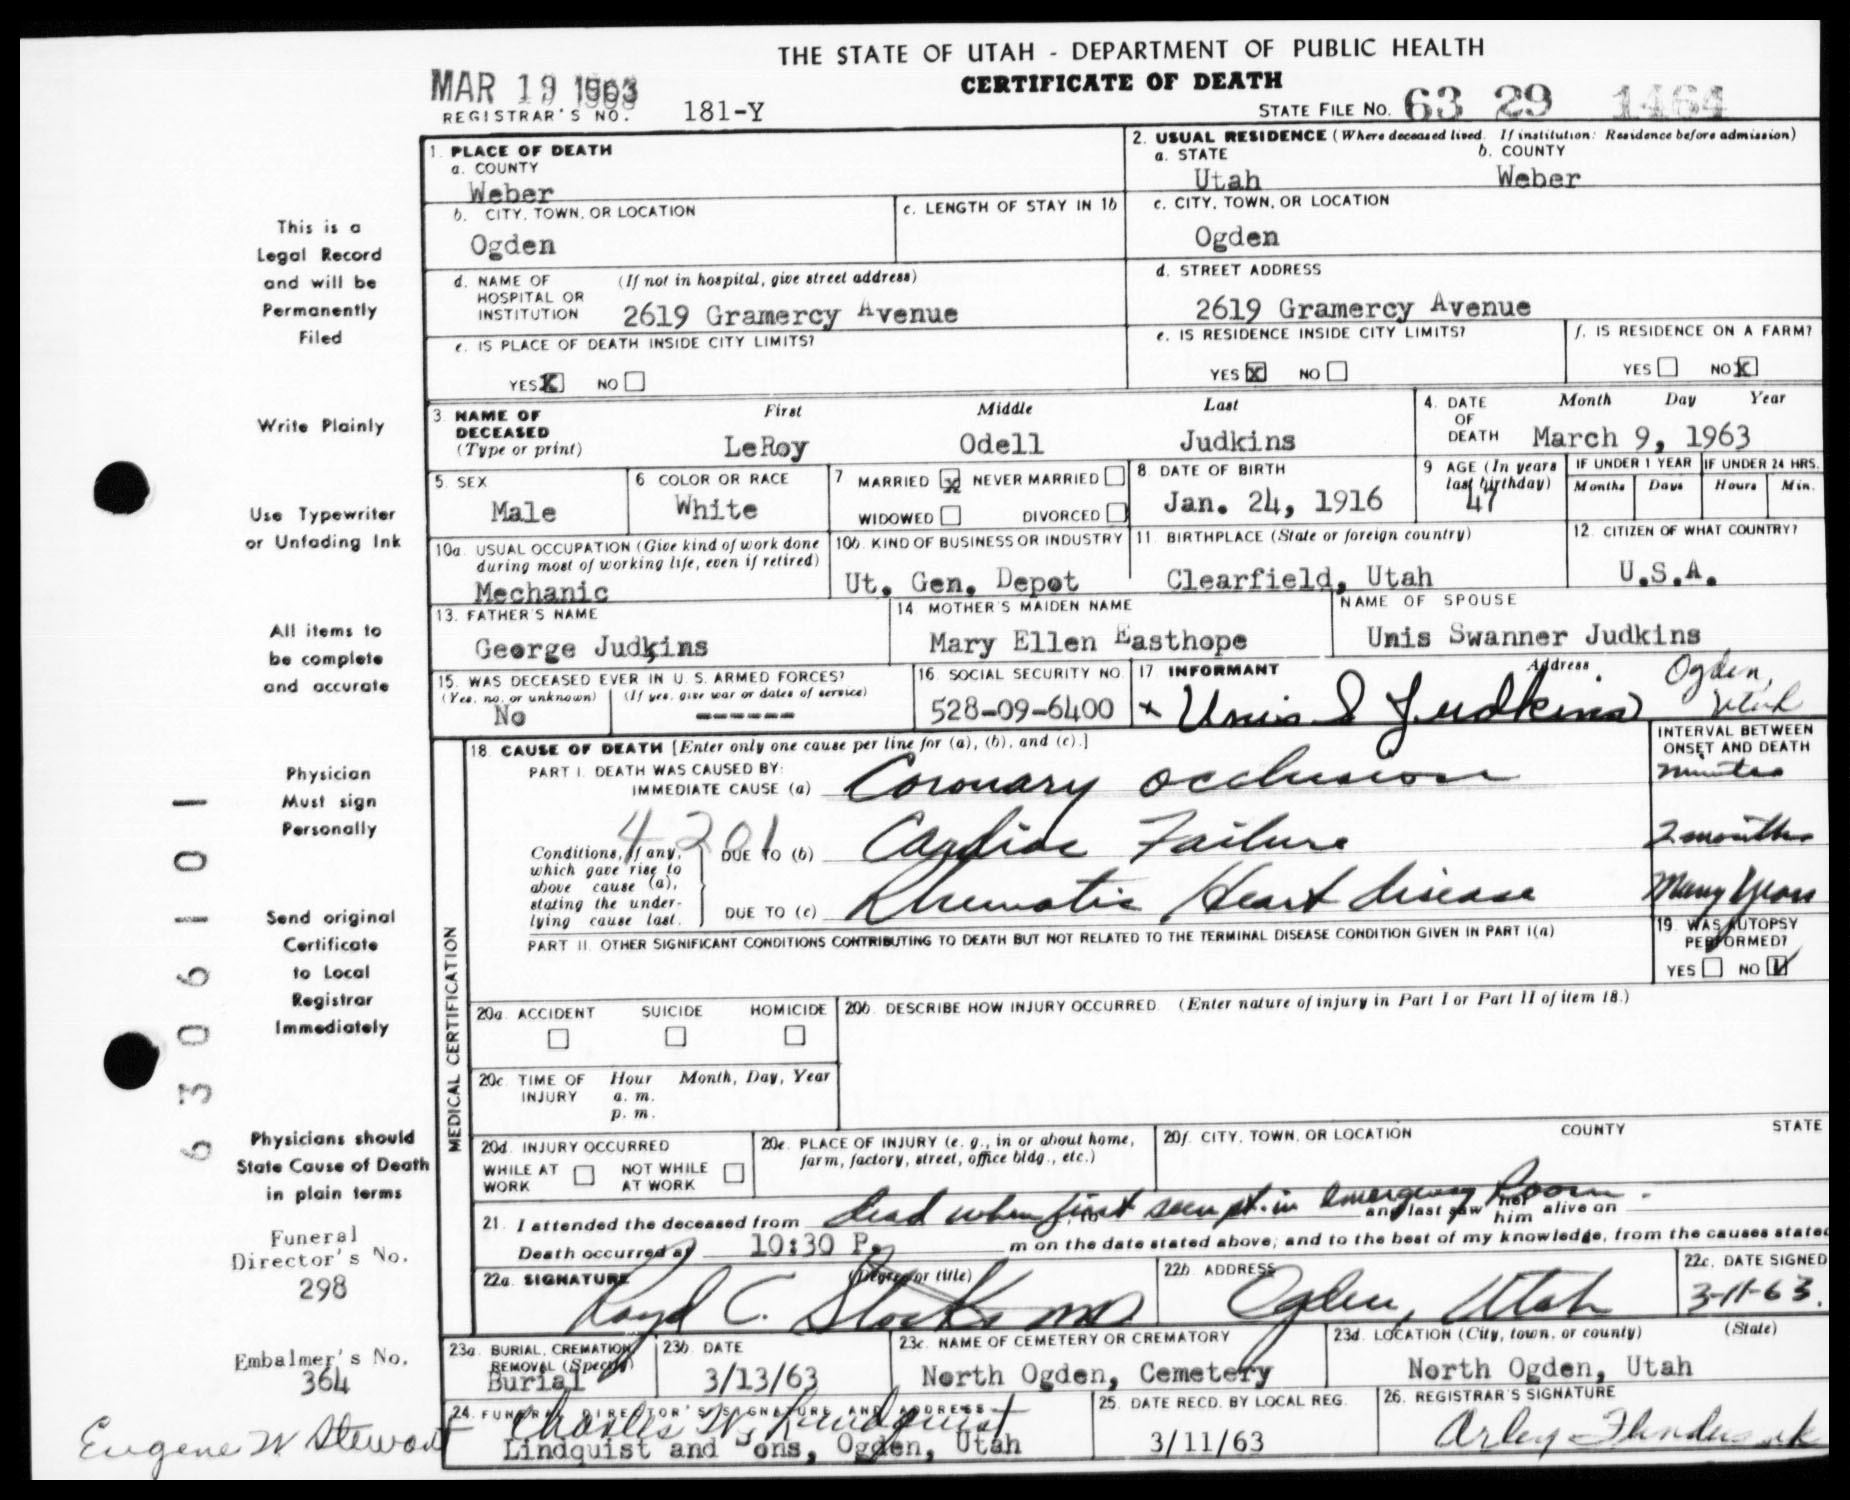 THE STATE OF UTAH - DEPARTMENT OF PUBLIC HEALTH
CERTIFICATE OF DEATH
MAR 19 1963
REGISTRAR'S NO. 181-Y
STATE FILE NO. 63 29 1464
1. PLACE OF DEATH
a. COUNTY
Weber
2. USUAL RESIDENCE (Where deceased lived. If institution: Residence before admission)
a. STATE b. COUNTY
Utah Weber
b. CITY, TOWN, OR LOCATION
Ogden
c. LENGTH OF STAY IN 1b
c. CITY, TOWN, OR LOCATION
Ogden
d. NAME OF HOSPITAL OR INSTITUTION (If not in hospital, give street address)
2619 Gramercy Avenue
d. STREET ADDRESS
2619 Gramercy Avenue
e. IS PLACE OF DEATH INSIDE CITY LIMITS?
YES X NO
e. IS RESIDENCE INSIDE CITY LIMITS?
YES X NO
f. IS RESIDENCE ON A FARM?
YES NO X
3. NAME OF DECEASED (Type or print)
First Middle Last
LeRoy Odell Judkins
4. DATE OF DEATH Month Day Year
March 9, 1963
5. SEX
Male
6 COLOR OR RACE
White
7 MARRIED X NEVER MARRIED
WIDOWED DIVORCED
8. DATE OF BIRTH
Jan. 24, 1916
9 AGE (In years last birthday)
47
IF UNDER 1 YEAR IF UNDER 24 HRS.
Months Days Hours Min.
10a. USUAL OCCUPATION (Give kind of work done during most of working life, even if retired)
Mechanic
10b. KIND OF BUSINESS OR INDUSTRY
Ut. Gen. Depot
11. BIRTHPLACE (State or foreign country)
Clearfield, Utah
12. CITIZEN OF WHAT COUNTRY?
U.S.A.
13. FATHER'S NAME
George Judkins
14 MOTHER'S MAIDEN NAME
Mary Ellen Easthope
NAME OF SPOUSE
Unis Swanner Judkins
15. WAS DECEASED EVER IN U. S. ARMED FORCES?
(Yes, no, or unknown) (If yes, give war or dates of service)
No ------
16. SOCIAL SECURITY NO.
528-09-6400
17 INFORMANT Address
x Unis S Judkins Ogden, Utah
MEDICAL CERTIFICATION
18. CAUSE OF DEATH [Enter only one cause per line for (a), (b), and (c).]
INTERVAL BETWEEN ONSET AND DEATH
PART I. DEATH WAS CAUSED BY:
IMMEDIATE CAUSE (a) Coronary occlusion minutes
4201
Conditions, if any, which gave rise to above cause (a), stating the underlying cause last.
DUE TO (b) Cardiac Failure 2 months
DUE TO (c) Rheumatic Heart disease Many years
PART II. OTHER SIGNIFICANT CONDITIONS CONTRIBUTING TO DEATH BUT NOT RELATED TO THE TERMINAL DISEASE CONDITION GIVEN IN PART I(a)
19. WAS AUTOPSY PERFORMED?
YES NO
20a. ACCIDENT SUICIDE HOMICIDE
20b. DESCRIBE HOW INJURY OCCURRED. (Enter nature of injury in Part I or Part II of item 18.)
20c. TIME OF INJURY Hour Month, Day, Year
a. m.
p. m.
20d. INJURY OCCURRED
WHILE AT WORK NOT WHILE AT WORK
20e. PLACE OF INJURY (e. g., in or about home, farm, factory, street, office bldg., etc.)
20f. CITY, TOWN, OR LOCATION COUNTY STATE
21. I attended the deceased from dead when first seen pt. in Emergency Room. and last saw her him alive on
Death occurred at 10:30 P. m on the date stated above; and to the best of my knowledge, from the causes stated
22a. SIGNATURE (Degree or title)
C. Stocks MD
22b. ADDRESS
Ogden, Utah
22c. DATE SIGNED
3-11-63.
23a. BURIAL, CREMATION, REMOVAL (Specify)
Burial
23b. DATE
3/13/63
23c. NAME OF CEMETERY OR CREMATORY
North Ogden, Cemetery
23d. LOCATION (City, town, or county) (State)
North Ogden, Utah
24. FUNERAL DIRECTOR'S SIGNATURE AND ADDRESS
Charles W. Lindquist
Lindquist and Sons, Ogden, Utah
25. DATE RECD. BY LOCAL REG.
3/11/63
26. REGISTRAR'S SIGNATURE
Arley
This is a
Legal Record
and will be
Permanently
Filed
Write Plainly
Use Typewriter
or Unfading Ink
All items to
be complete
and accurate
Physician
Must sign
Personally
Send original
Certificate
to Local
Registrar
Immediately
Physicians should
State Cause of Death
in plain terms
Funeral
Director's No.
298
Embalmer's No.
364
Eugene W Stewart